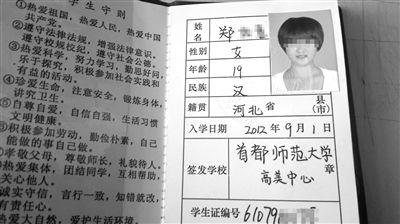 学生守则
①热爱祖国，热爱人民，热爱中国
共产党。
②遵守法律法规，增强法律意识。
遵守校规校纪，遵守社会公德。
③热爱科学，努力学习，勤思好问，
乐于探究，积极参加社会实践和
有益的活动。
④珍爱生命，注意安全，锻炼身体，
讲究卫生。
⑤自尊自爱，自信自强，生活习惯
文明健康。
⑥积极参加劳动，勤俭朴素，自己
能做的事自己做。
孝敬父母，尊敬师长，礼貌待人。
热爱集体，团结同学，互相帮助，
关心他人。
诚实守信，言行一致，知错就改，
有责任心。
热爱大自然，爱护生活环境。
姓名 郑
性别 女
年龄 19
民族 汉
籍贯 河北 省 县(市)
入学日期 2012 年 9 月 1 日
签发学校 首都师范大学
高美中心 章
学生证编号 61079